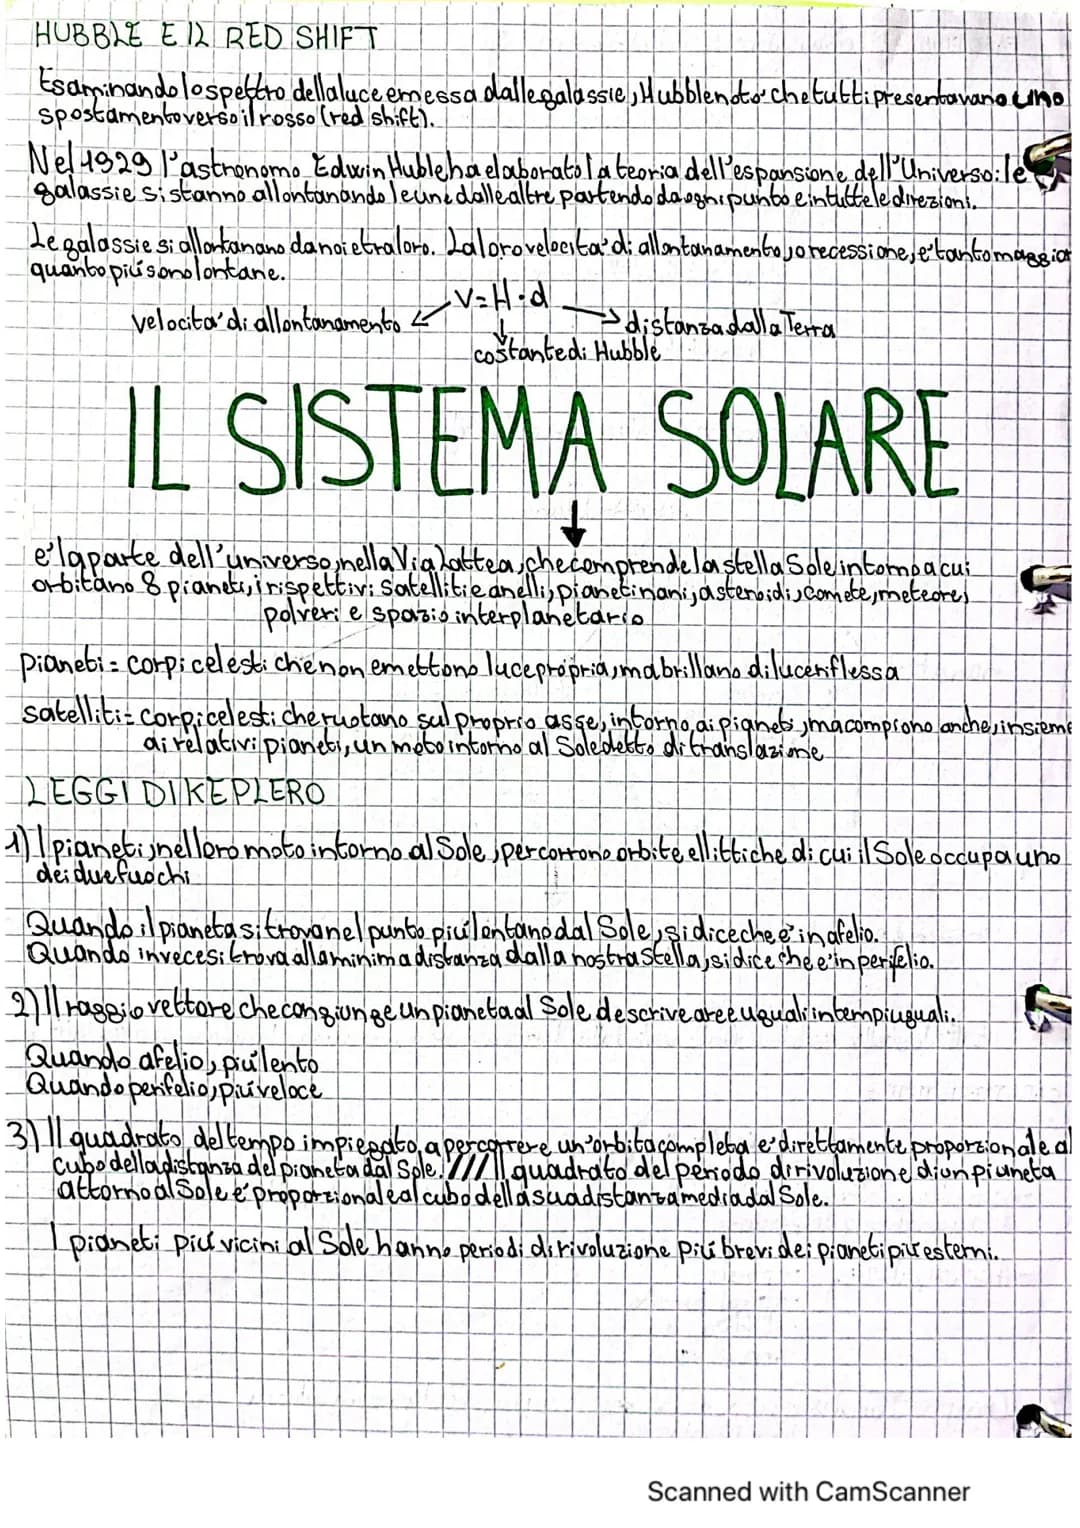 HUBBLE E IL RED SHIFT
Esaminando lo spettro della luce emessa dalle galassie, Hubble noto' che tutti presentavano uno
spostamento verso il rosso (red shift).
Nel 1929 l'astronomo Edwin Huble ha elaborato la teoria dell'espansione dell'Universo: le
galassie si stanno allontanando le une dalle altre partendo da ogni punto e in tutte le direzioni.
Le galassie si allontanano da noi e tra loro. La loro velocita' di allontanamento, o recessione, e' tanto maggior
quanto piú sono lontane.
V = H · d
velocita' di allontanamento
distanza dalla Terra
costante di Hubble
IL SISTEMA SOLARE
e' la parte dell'universo, nella Via Lattea, che comprende la stella Sole intorno a cui
orbitano 8 pianeti, i rispettivi satelliti e anelli, pianeti nani, asteroidi, comete, meteore,
polveri e spazio interplanetario
pianeti = corpi celesti che non emettono luce propria, ma brillano di luce riflessa
satelliti = corpi celesti che ruotano sul proprio asse, intorno ai pianeti, ma compiono anche, insieme
ai relativi pianeti, un moto intorno al Sole detto di translazione
LEGGI DI KEPLERO
1) I pianeti, nel loro moto intorno al Sole, percorrono orbite ellittiche di cui il Sole occupa uno
dei due fuochi
Quando il pianeta si trova nel punto piú lontano dal Sole, si dice che è in afelio.
Quando invece si trova alla minima distanza dalla nostra stella, si dice che e' in perifelio.
2) Il raggio vettore che congiunge un pianeta al Sole descrive aree uguali in tempi uguali.
Quando afelio, piú lento
Quando perifelio, piú veloce
3) Il quadrato del tempo impiegato a percorrere un'orbita completa e' direttamente proporzionale al
cubo della distanza del pianeta dal Sole. //// Il quadrato del periodo di rivoluzione di un pianeta
attorno al Sole e' proporzionale al cubo della sua distanza media dal Sole.
I pianeti piú vicini al Sole hanno periodi di rivoluzione piú brevi dei pianeti piú esterni.
Scanned with CamScanner